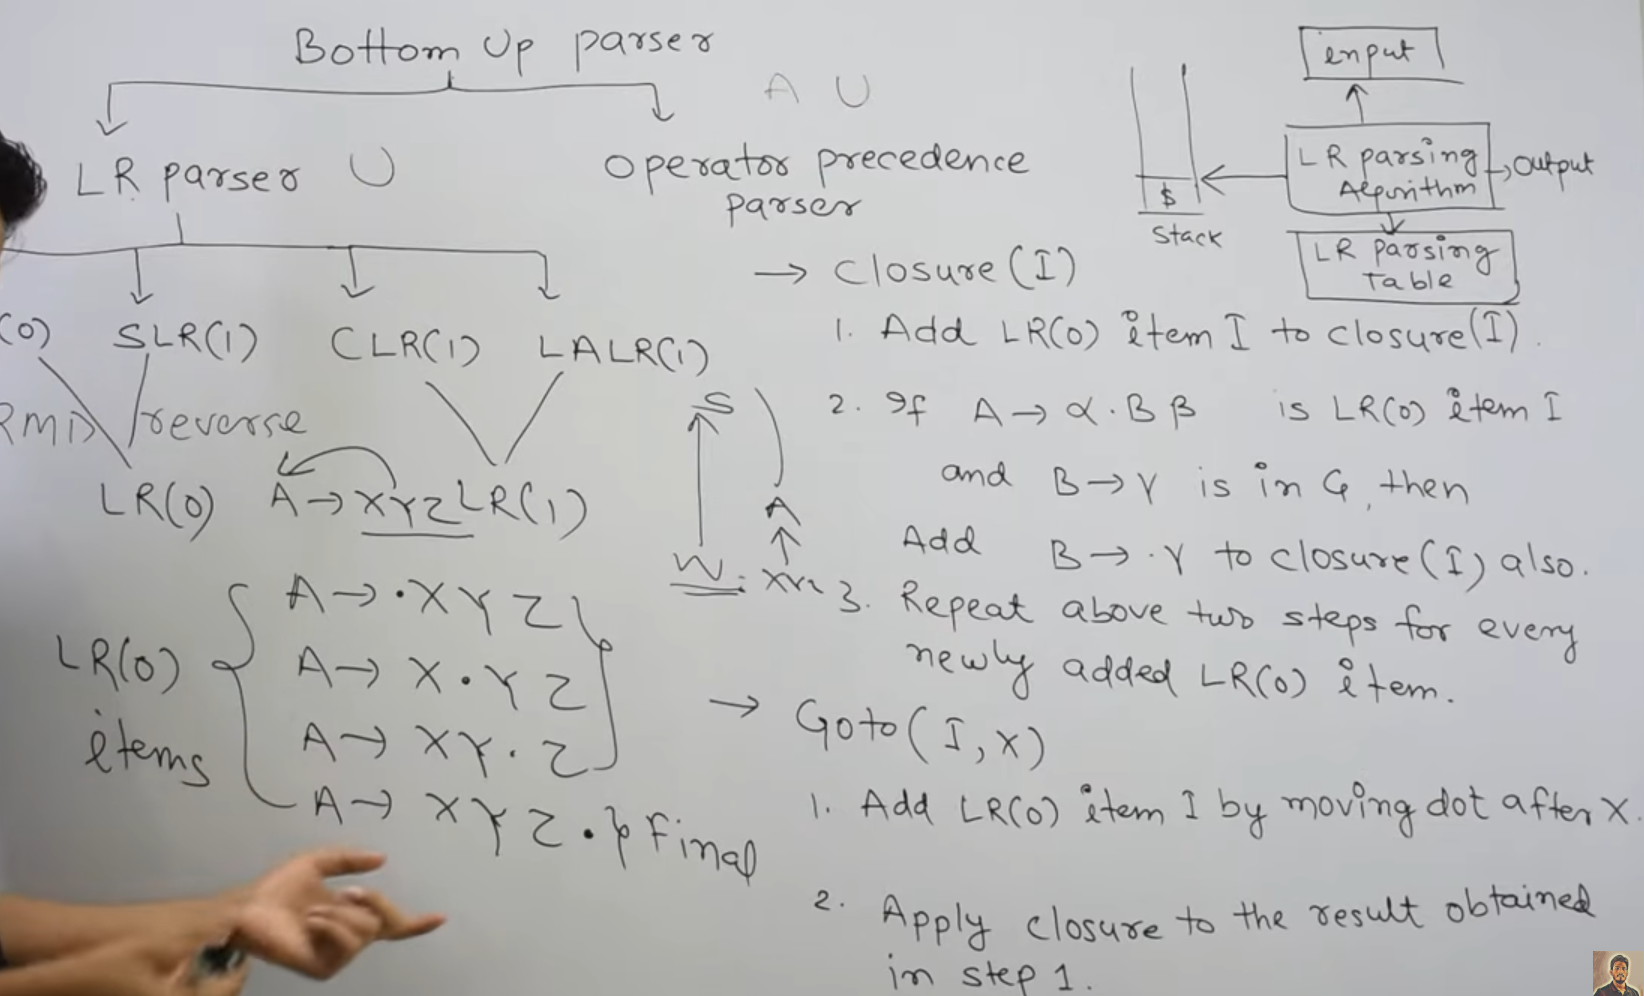 Bottom Up parser
A U
LR parser U
Operator precedence
parser
(0) SLR(1) CLR(1) LALR(1)
RMD reverse
LR(0) A → XYZ LR(1)
LR(0)
items
A → ·XYZ
A → X·YZ
A → XY·Z
A → XYZ· } Final
S
W
A
XYZ
input
LR parsing
Algorithm
Output
$
Stack
LR parsing
Table
→ Closure(I)
1. Add LR(0) item I to closure(I).
2. If A → α·Bβ is LR(0) item I
and B → γ is in G, then
Add B → ·γ to closure(I) also.
3. Repeat above two steps for every
newly added LR(0) item.
→ Goto(I,X)
1. Add LR(0) item I by moving dot after X.
2. Apply closure to the result obtained
in step 1.